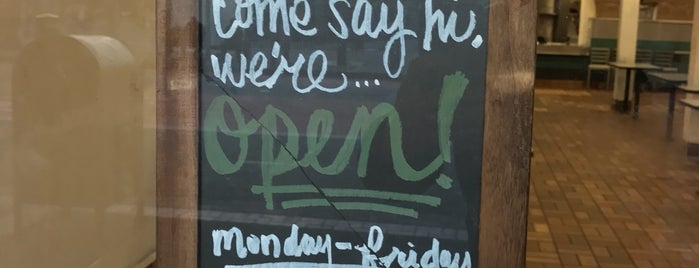 come say hi,
we're...
open!
monday - friday